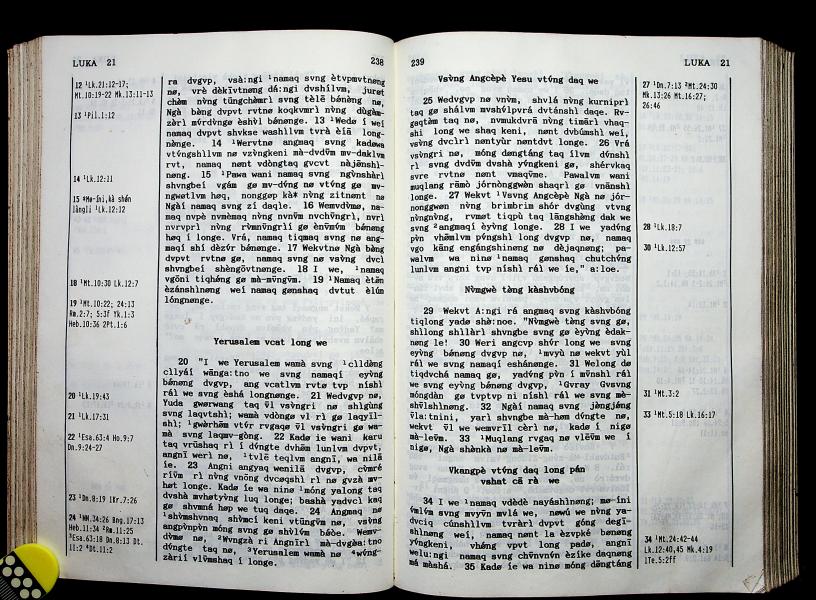 LUKA 21
238
12 ¹Lk.21:12-17;
Mt.10:19-22 Mk.13:11-13
13 ¹Pil.1:12
14 ¹Lk.12:11
làngli ¹Lk.12:12
18 ¹Mt.10:30 Lk.12:7
19 ¹Mt.10:22; 24:13
Rm.2:7; 5:3f Yk.1:3
Heb.10:36 2Pt.1:6
20 ¹Lk.19:43
21 ¹Lk.17:31
22 ¹Esa.63:4 Ho.9:7
Dn.9:24-27
23 ¹Dn.8:19 1Kr.7:26
24 ¹NM.34:26 Bng.17:13
Heb.11:34 ²Rm.11:25
³Esa.63:18 Dn.8:13 Dt.
11:2 ⁴Dt.11:2
ra dvgvp, vsà:ngi ¹namaq svng ètvpmvtnøng
nø, vrè dèkītvnøng dá:ngi dvshílvm, jurøt
chèm nv̀ng tūngchèmrì svng tèlē bénøng nø,
Ngà bèng dvpvt rvtnø koqkvmrì nv̀ng dùgǿm-
zèrì mv́rdv̀ngø èshv̀l bénønge. 13 ¹Wedø í weí
namaq dvpvt shvkse washllvm tvrà èíē long-
nènge. 14 ¹Wervtnø angmaq svng kadøwa
vtv́ngshllvm nø vzv̀ngkení mà-dvdv̄m mv-daklvm
rvt, namaq nønt vdòngtaq gvcvt nàjēnshl-
nøng. 15 ¹Pawa wani namaq svng ngv̀nshàrì
shvngbeí vgám gø mv-dv́ng nø vtv́ng gø mv-
ngwøtlvm høq, nonggøp kà* nv̀ng zitnønt nø
Ngàí namaq svng zí daqle. 16 Wemvdv̀mø, na-
maq nvpè nvmèmaq nv̀ng nvnv́m nvchv̀ngrì, nvrì
nvrvprì nv̀ng rv̀mnv̀ngrìí gø ènv̄mv́m bénøng
høq í longe. Vrá, namaq tiqmaq svng nø ang-
maqí shì dèzv́r bénønge. 17 Wekvtnø Ngà bèng
dvpvt rvtnø gø, namaq svng nø vsv̀ng dvcì
shvngbeí shèngòvtnønge. 18 I we, ¹namaq
vgōní tiqhéng gø mà-mv̄ngv́m. 19 ¹Namaq ètøn
èzánshlnøng weí namaq gønøhaq dvtut èlúm
lóngnønge.
Yerusalem vcat long we
20 "I we Yerusalem wamà svng ¹clldèng
cllyáí wānga:tno we svng namaqí eyv̀ng
bénøng dvgvp, ang vcatlvm rvtø tvp níshl
rál we svng èshá longnønge. 21 Wedvgvp nø,
Yuda gwørwang taq v̄l vsv̀ngrì nø shlgùng
svng laqvtshl; wamà vdòngø vl rì gø laqyíl-
shl; ¹gwørhøm vtv́r rvgaqø v̄l vsv̀ngrì gø wa-
mà svng laqmv-gòng. 22 Kadø íe wani karu
taq vrūshaq rì í dv́ngte dvhøm lunlvm dvpvt,
angnì werì nø, ¹tvlē teqlvm angnì, wa nilà
íe. 23 Angní angyaq wenilà dvgvp, cv̀mré
rìv́m rì nv̀ng vnōng dvcøqshì rì nø gvzà mv-
høt longe. Kadø íe wa ninø ¹móng yalong taq
dvshà mvhøtyv̀ng luq longe; bashà yadvcì kaq
gø shvmná høp we tuq daqe. 24 Angmaq nø
¹shv̀mshvnaq shv̀mcí kení vtūngv́m nø, vsv̀ng
angpv̀npv̀n móng svng gø shv̀lv́m bǿøe. Wemv-
dv̀mø nø, ²Wvngzà rì Angnìrì mà-dvgèa:tno
dv́ngte taq nø, ³Yerusalem wamà nø ⁴wv́ng-
zàrìí vlv̄mshaq í longe.
239
LUKA 21
Vsv̀ng Angcèpè Yesu vtv́ng daq we
25 Wedvgvp nø vnv̀m, shvlá nv̀ng kurniprì
taq gø shálvm mvshv́lpvrá dvtánshì daqe. Rv-
gaqtàm taq nø, nvmukdvrā nv̀ng timārì vhaq-
shì long we shaq kení, nønt dvbúmshì weí,
vsv̀ng dvclrì nøntyùr nøntdvt longe. 26 Vrá
vsv̀ngrì nø, móng døngtáng taq ílvm dv́nshl
rì svng dvdv́m dvshà yv̀ngkení gø, shérvkaq
svre rvtnø nønt vmaqv̄me. Pawalvm wani
muqlang rāmò jórnònggwèn shaqrì gø vnànshl
longe. 27 Wekvt ¹Vsvng Angcèpè Ngà nø jór-
nonggwøn nv̀ng brimbrim shór dvgùng vtvng
nv̀ngnv̀ng, rvmøt tiqpù taq lāngshèng dak we
svng ²angmaqí èyv̀ng longe. 28 I we yadv́ng
pv̀n vhēmlvm pv́ngshl long dvgvp nø, namaq
vgo kàng engángshinøng nø dèjaqnøng; pa-
walvm wa ninø ¹namaq gønøhaq chutchv́ng
lunlvm angnì tvp níshl rál we íe," a:loe.
Nv̀mgwè tèng kàshvbóng
29 Wekvt A:ngí rá angmaq svng kàshvbóng
tiqlong yadø shè:noe. "Nv̀mgwè tèng svng gø,
shllong shllàrì shvngbe svng gø èyv̀ng èdak-
nøng le! 30 Werì angcvp shv́r long we svng
eyv̀ng bénøng dvgvp nø, ¹mvyù nø wekvt yùl
rál we svng namaqí eshánønge. 31 Welong dø
tiqdvchá namaq gø, yadv́ng pv̀n í mv̄nshl rál
we svng eyv̀ng bénøng dvgvp, ¹Gvray Gvsvng
móngdàn gø tvptvp ní níshl rál we svng mè-
shv̄lshlnøng. 32 Ngàí namaq svng jèngjèng
v̄la:tniní, yarì shvngbe mà-høm dv́ngte nø,
wekvt v̄l we wemvrīl cèrì nø, kadø í nigø
mà-lev̄m. 33 ¹Muqlang rvgaq nø vlēv́m we í
nigø, Ngà shènkà nø mà-lev̄m.
Vkangpè vtv́ng daq long pán
vahat cā rà we
34 I we ¹namaq vdèdè nayáshlnøng; mø-íní
v́mlv́m svng mvyv̄n mvlá we, nøwú we nv̀ng ya-
dvciq cúnshllvm tvràrì dvpvt góng degī-
shlnøng weí, namaq nønt la èzvpké bénøng
yv́ngkení, vháng vpvt long padø, angnì
welu:ngí namaq svng chv̄nvnv́n èzíke daqnøng
má màshá. 35 Kadø íe wa ninø móng dāngtáng
27 ¹Dn.7:13 ²Mt.24:30
Mk.13:26 Mt.16:27;
26:46
28 ¹Lk.18:7
30 ¹Lk.12:57
31 ¹Mt.3:2
33 ¹Mt.5:18 Lk.16:17
34 ¹Mt.24:42-44
Lk.12:40,45 Mk.4:19
1Te.5:2ff